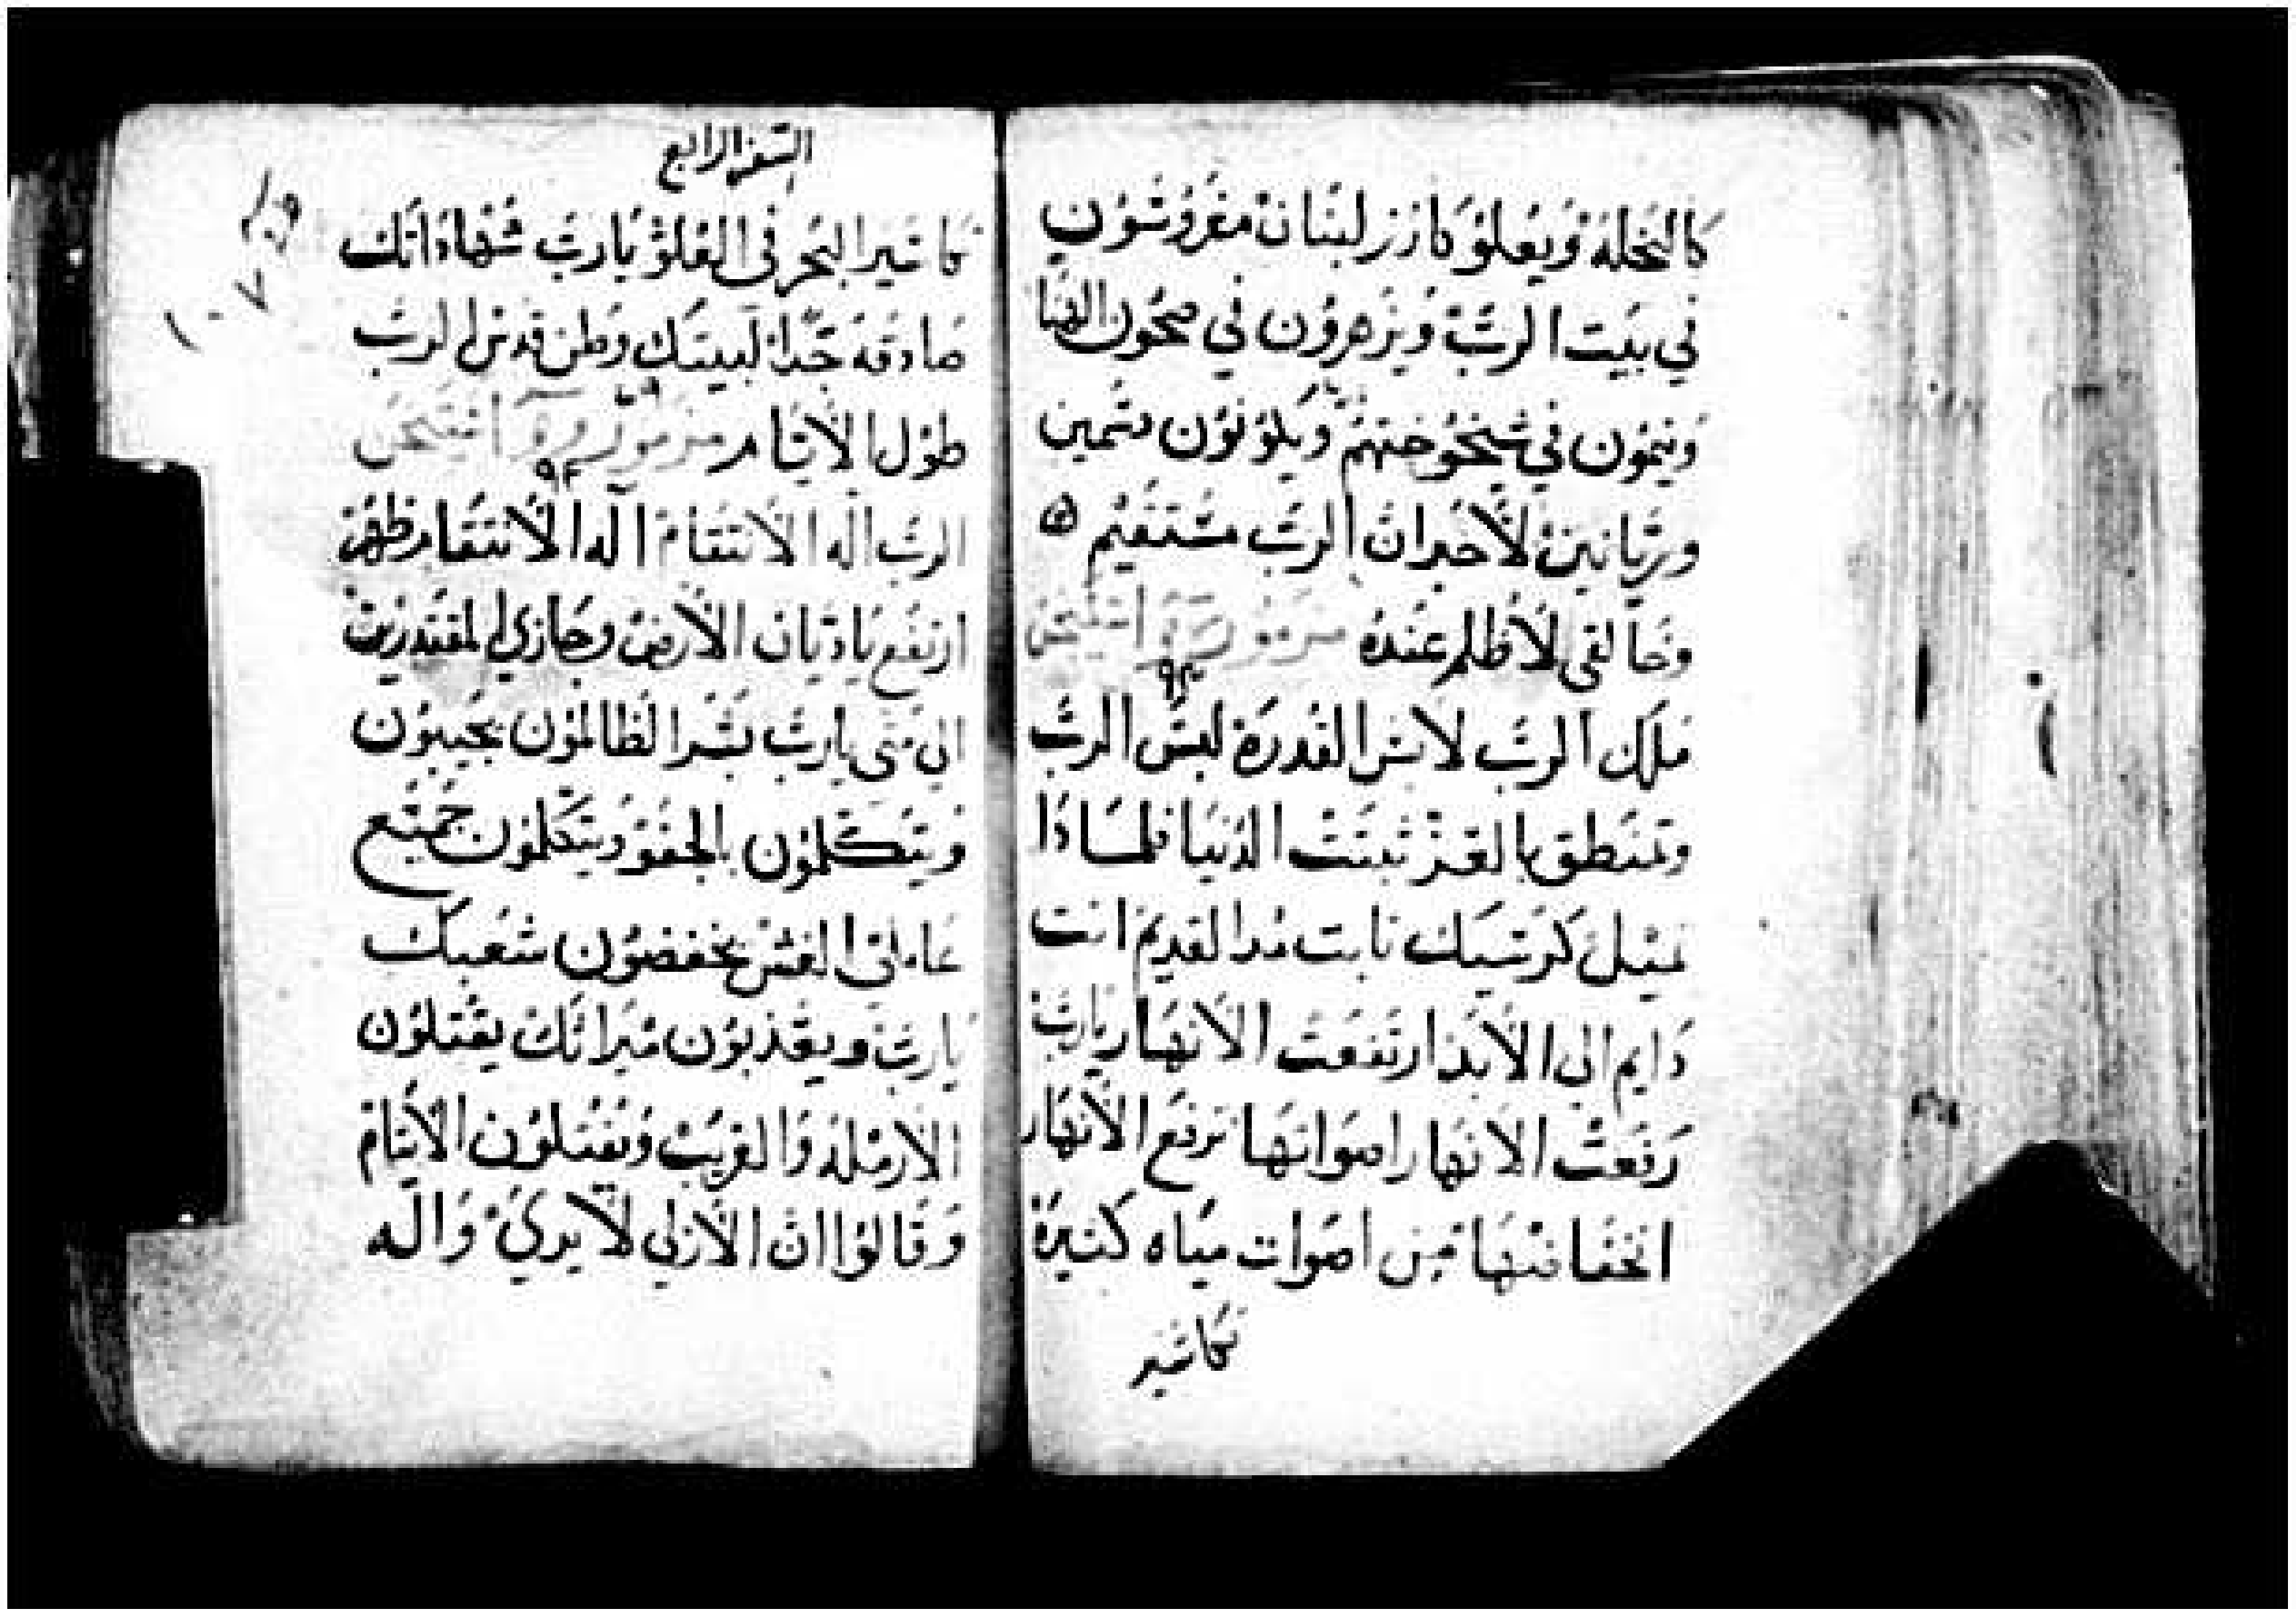 كالنخله ويعلو كارز لبنان مغروسون
في بيت الرب ويزهرون في صحون الهنا
وينمون في شيخوختهم ويكونون دسمين
وريانين لاخبر ان الرب مستقيم
وخالقي لا ظلم عنده مزمور
٩٣
ملك الرب لابس القدره لبس الرب
وتمنطق بالعز ثبتت الدنيا فلماذا
تميل كرسيك ثابت مذ القديم انت
دايم الي الابد ارتفعت الانهار يارب
رفعت الانهار اصواتها ترفع الانهار
انخفاتها من اصوات مياه كثيرة
كاشير
السفر الرابع
كاشير البحر في العلو يارب شهاداتك
صادقه جدا لبيتك وطن قدس الرب
طول الايام مزمور
٩٤
الرب اله الانتقام اله الانتقام ظهر
ارتفع يا ديان الارض وجازي المقتدرين
الي متي يارب بشر الظالمون يجيبون
ويتكلمون بالجفو ويتكلمون جميع
عاملي الغش يخفضون شعبك
يارب ويعذبون ميراثك يقتلون
الارمله والغريب ويقتلون الايتام
وقالوا ان الازلي لا يري واله